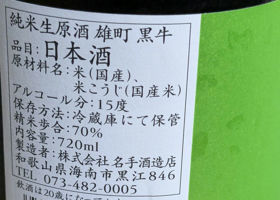 純米生原酒 雄町 黒牛
品目:日本酒
原材料名:米(国産)、
米こうじ(国産米)
アルコール分:15度
保存方法:冷蔵庫にて保管
精米歩合:70%
内容量:720ml
製造者:株式会社名手酒造店
和歌山県海南市黒江846
TEL 073-482-0005
飲酒は20歳になって